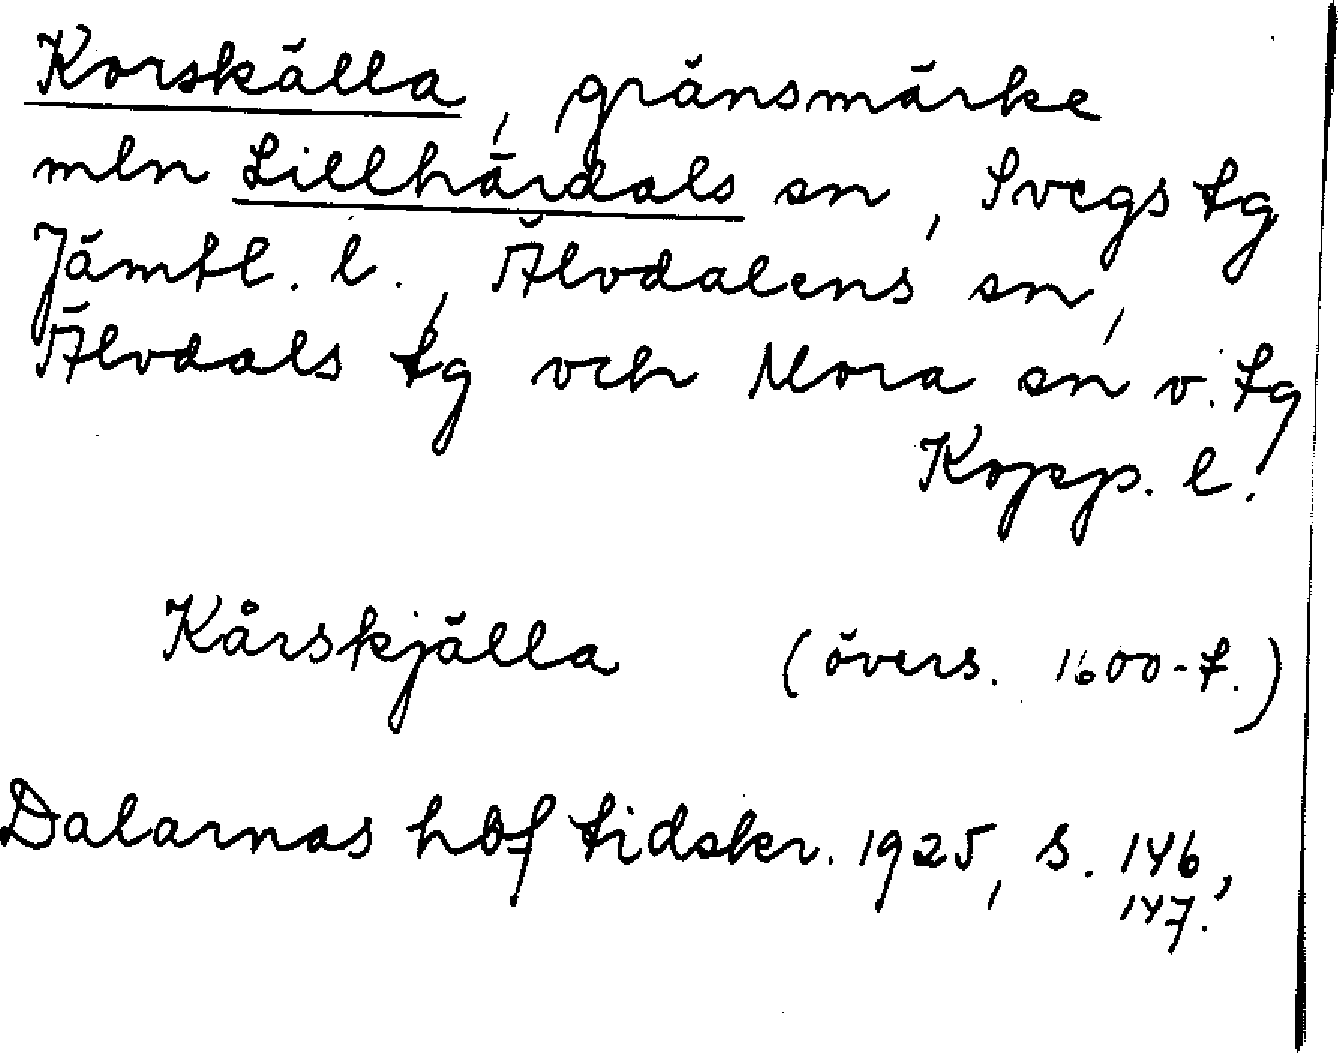 Korskälla, gränsmärke
mln Lillhärdals sn, Svegs tg
Jämtl. l., Älvdalens sn,
Älvdals tg och Mora sn o. tg
Kopp. l.
Kårskjälla (övers. 1600-t.)
Dalarnas hbf tidskr. 1925, s. 146,
147.